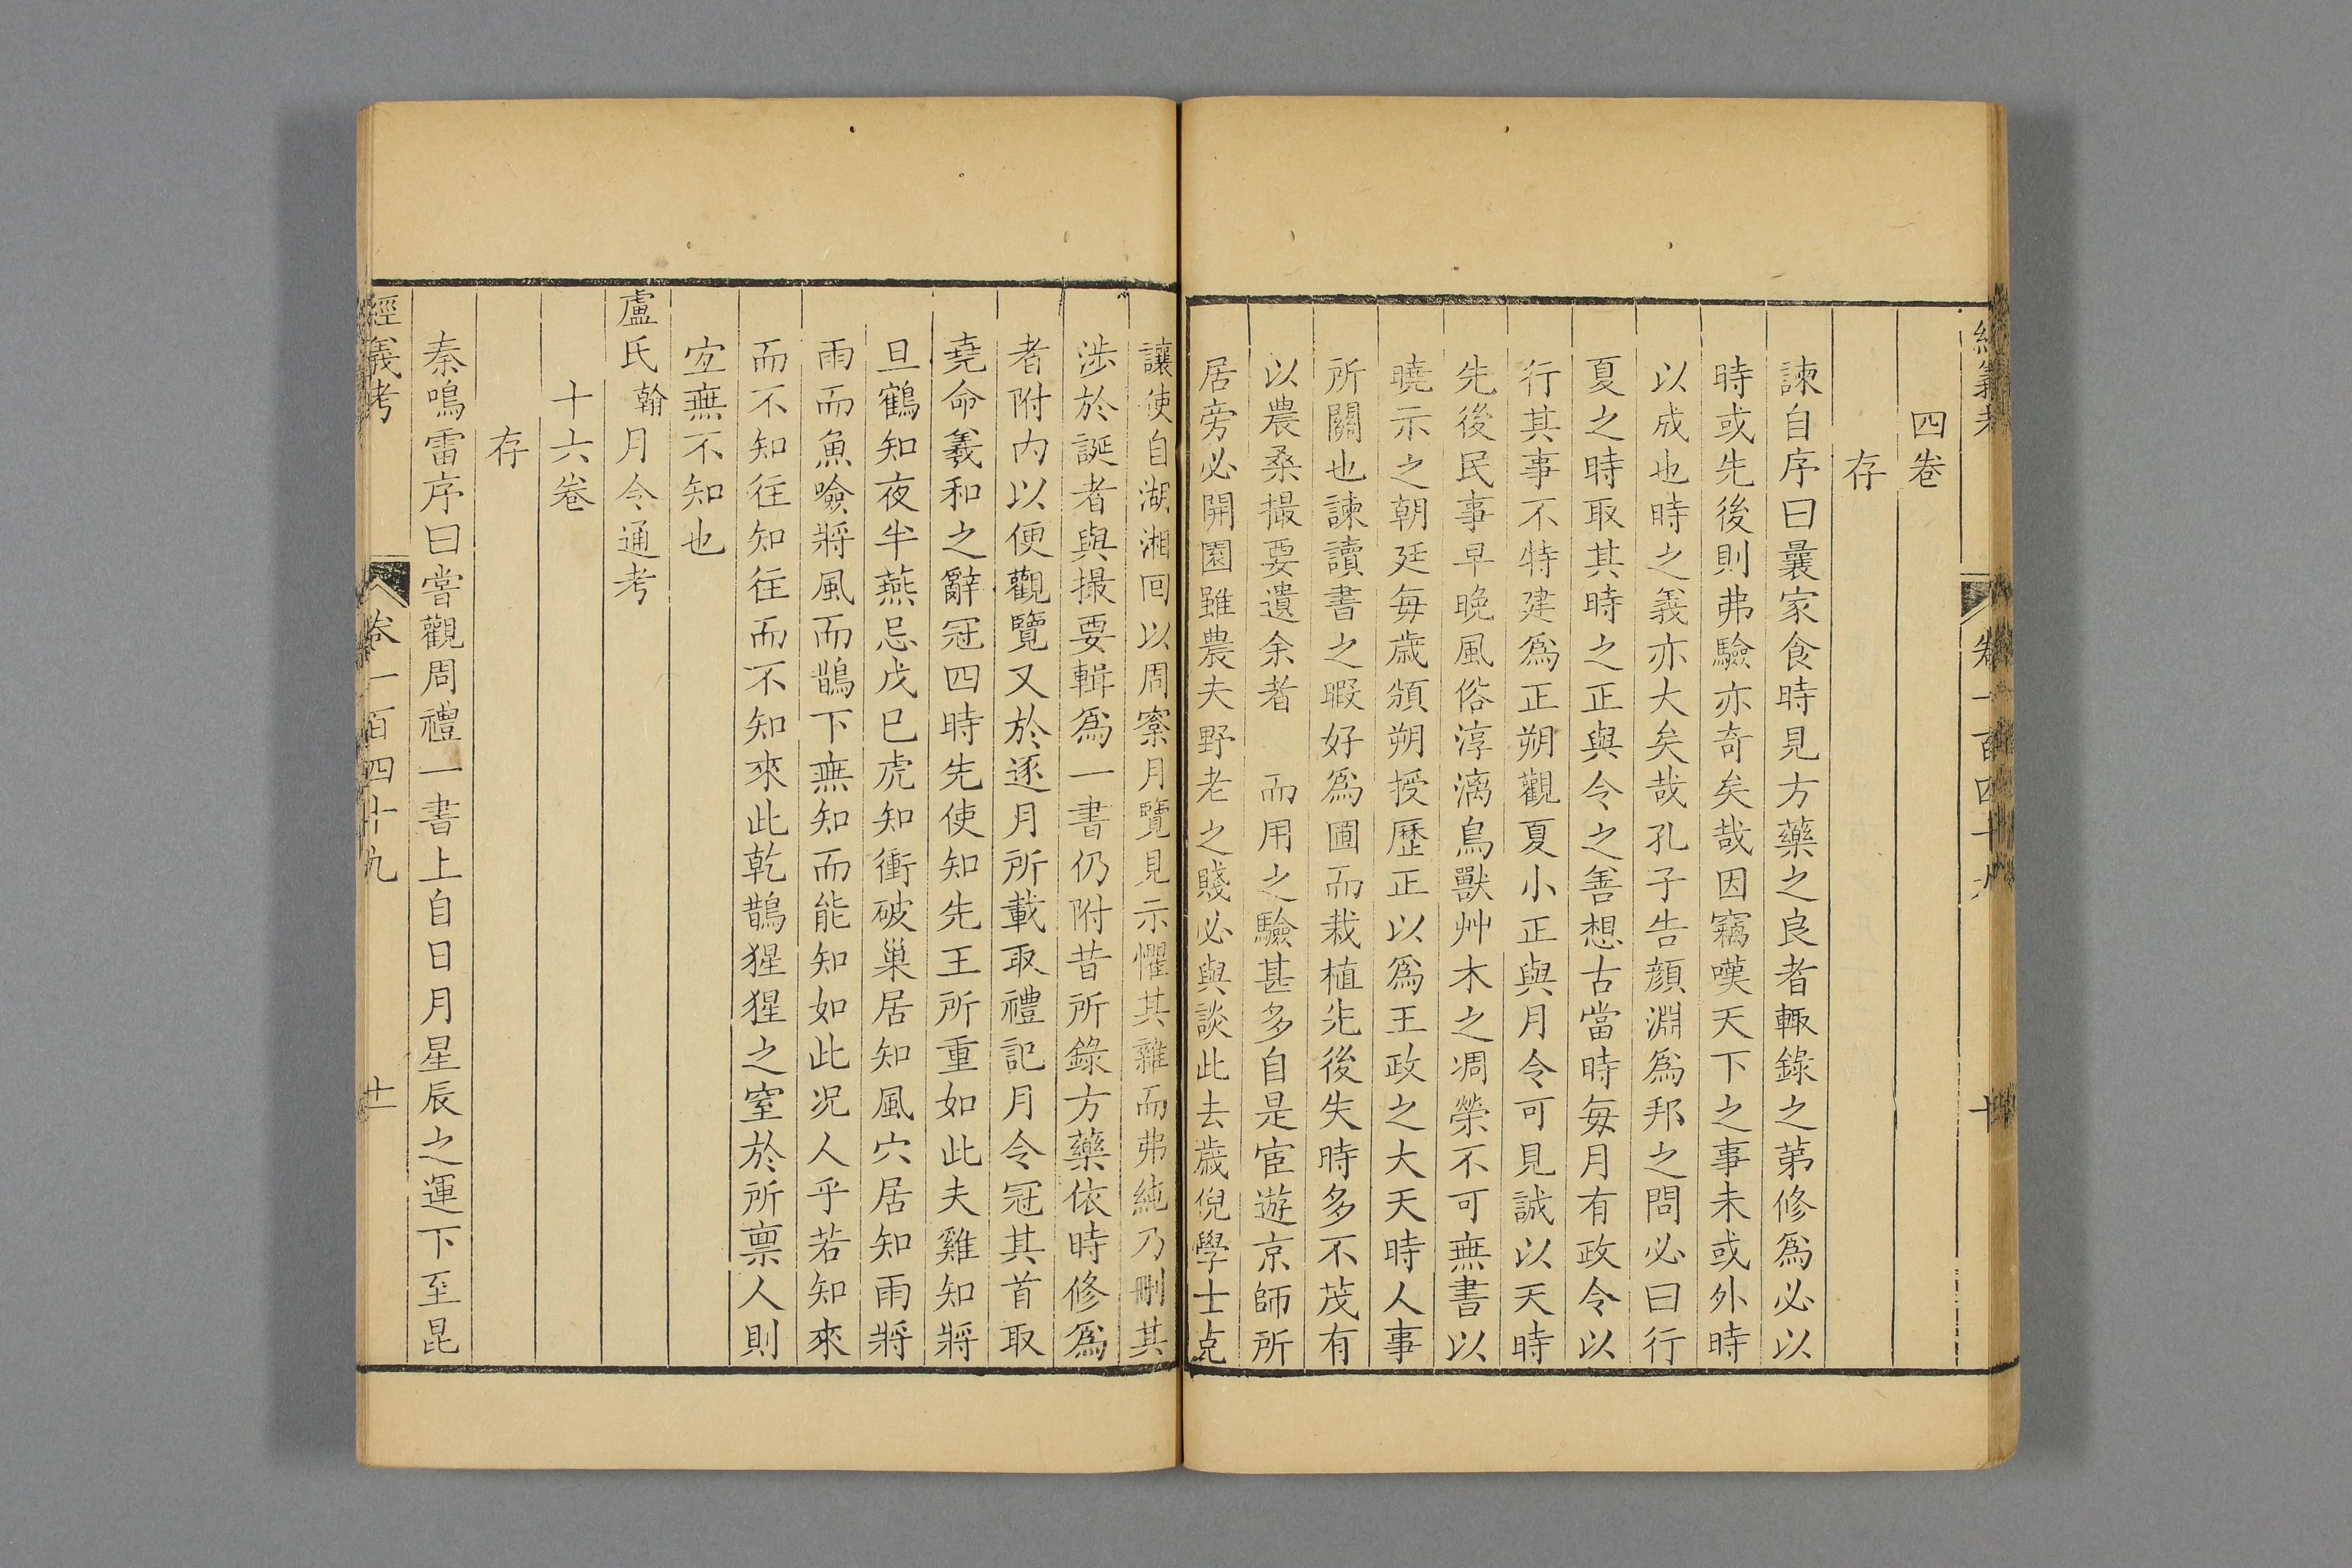 經義考 卷一百四十九 十
四卷
存
諫自序曰曩家食時見方藥之良者輙錄之苐修爲必以
時或先後則弗驗亦奇矣哉因竊嘆天下之事未或外時
以成也時之義亦大矣哉孔子告顔淵爲邦之問必曰行
夏之時取其時之正與令之善想古當時每月有政令以
行其事不特建爲正朔觀夏小正與月令可見誠以天時
先後民事早晚風俗淳漓鳥獸艸木之凋榮不可無書以
曉示之朝廷每歲頒朔授歷正以爲王政之大天時人事
所關也諫讀書之暇好爲圃而栽植先後失時多不茂有
以農桑撮要遺余者 而用之驗甚多自是宦遊京師所
居旁必開園雖農夫野老之賤必與談此去歲倪學士克
讓使自湖湘回以周寀月覽見示懼其雜而弗純乃刪其
涉於誕者與撮要輯爲一書仍附昔所錄方藥依時修爲
者附內以便觀覽又於逐月所載取禮記月令冠其首取
堯命羲和之辭冠四時先使知先王所重如此夫雞知將
旦鶴知夜半燕忌戊巳虎知衝破巢居知風穴居知雨將
雨而魚噞將風而鵲下無知而能知如此况人乎若知來
而不知往知往而不知來此乾鵲猩猩之窒於所禀人則
宐無不知也
盧氏翰月令通考
十六卷
存
秦鳴雷序曰嘗觀周禮一書上自日月星辰之運下至昆
經義考 卷一百四十九 十一